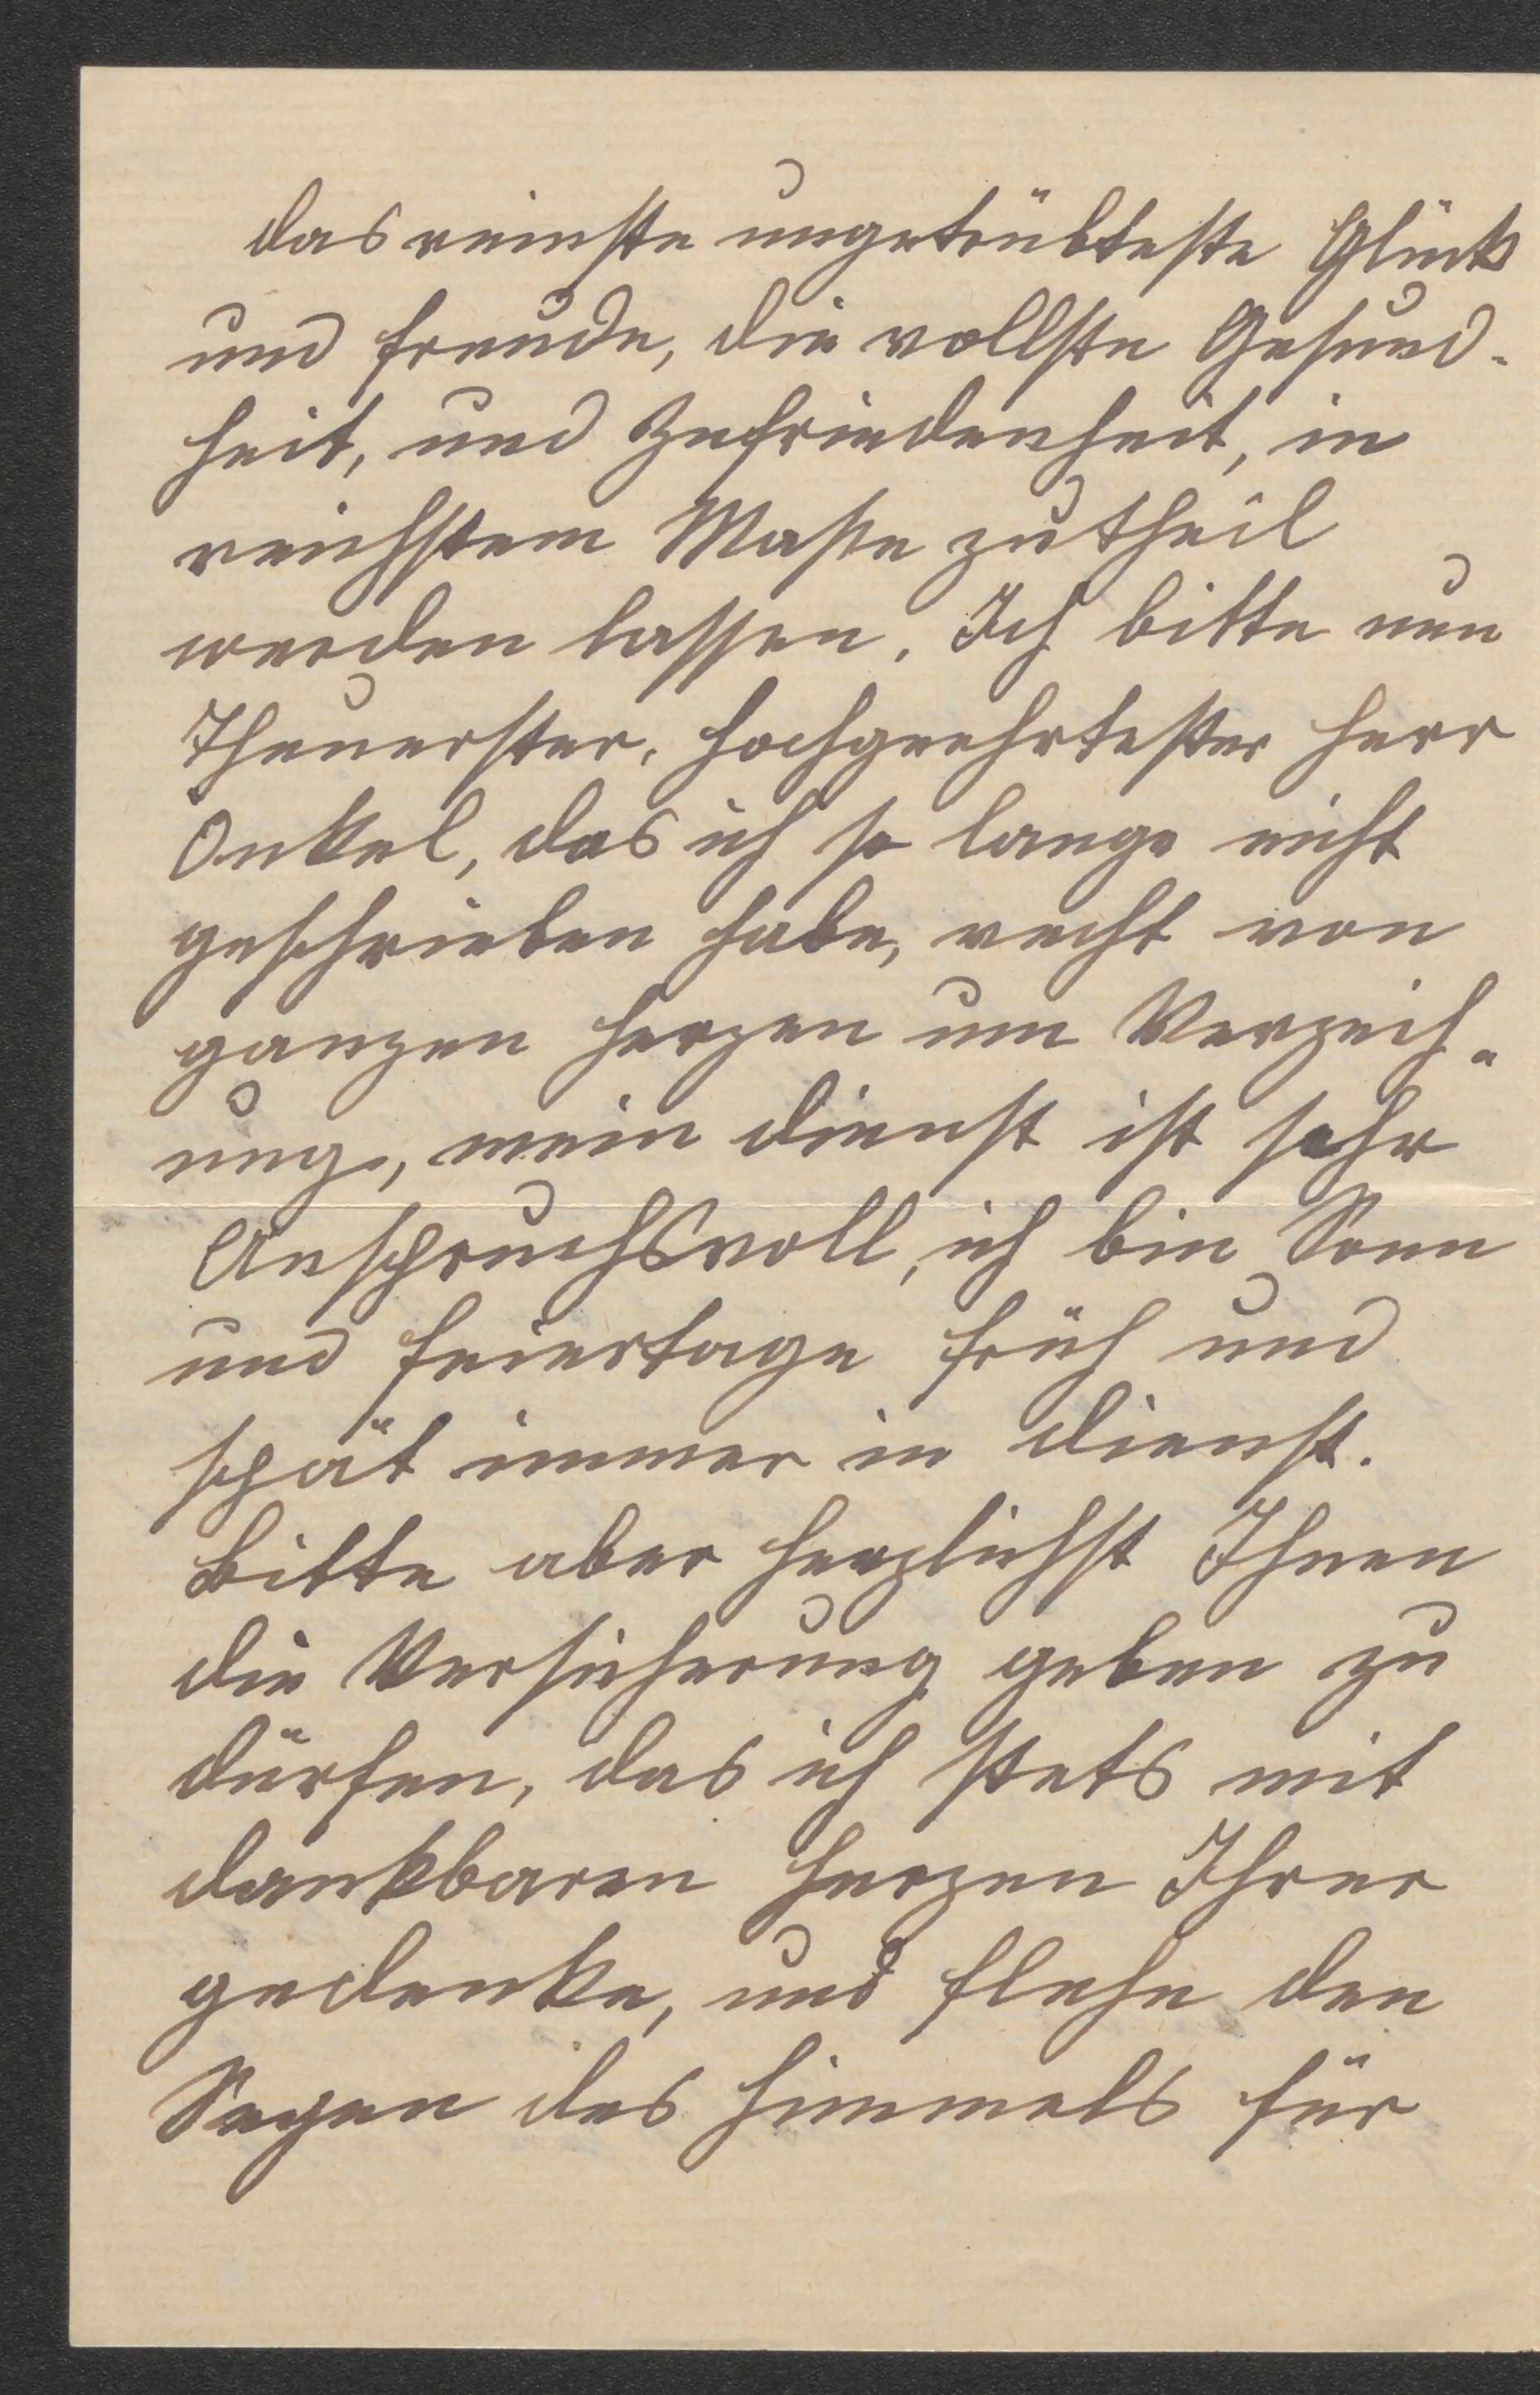 das reinste ungetrübteste Glück
und freude, die vollste Gesund-
heit, und Zufriedenheit, in
reichstem Maße zutheil
werden lassen. Ich bitte nun
Theuerster, hochgeehrtester Herr
Onkel, das ich so lange nicht
geschrieben habe, recht von
ganzen Herzen um Verzeih-
ung, mein dienst ist sehr
Anspruchsvoll, ich bin Sonn
und feiertage früh und
spät immer in dienst.
Bitte aber herzlichst Ihnen
die Versicherung geben zu
dürfen, das ich stets mit
dankbaren Herzen Ihrer
gedenke, und flehe den
Segen des Himmels für